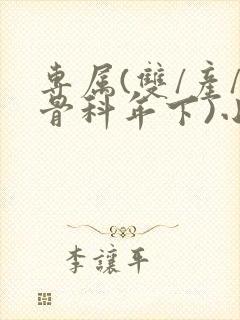 專属(雙/產/
骨科年下)
李讓平